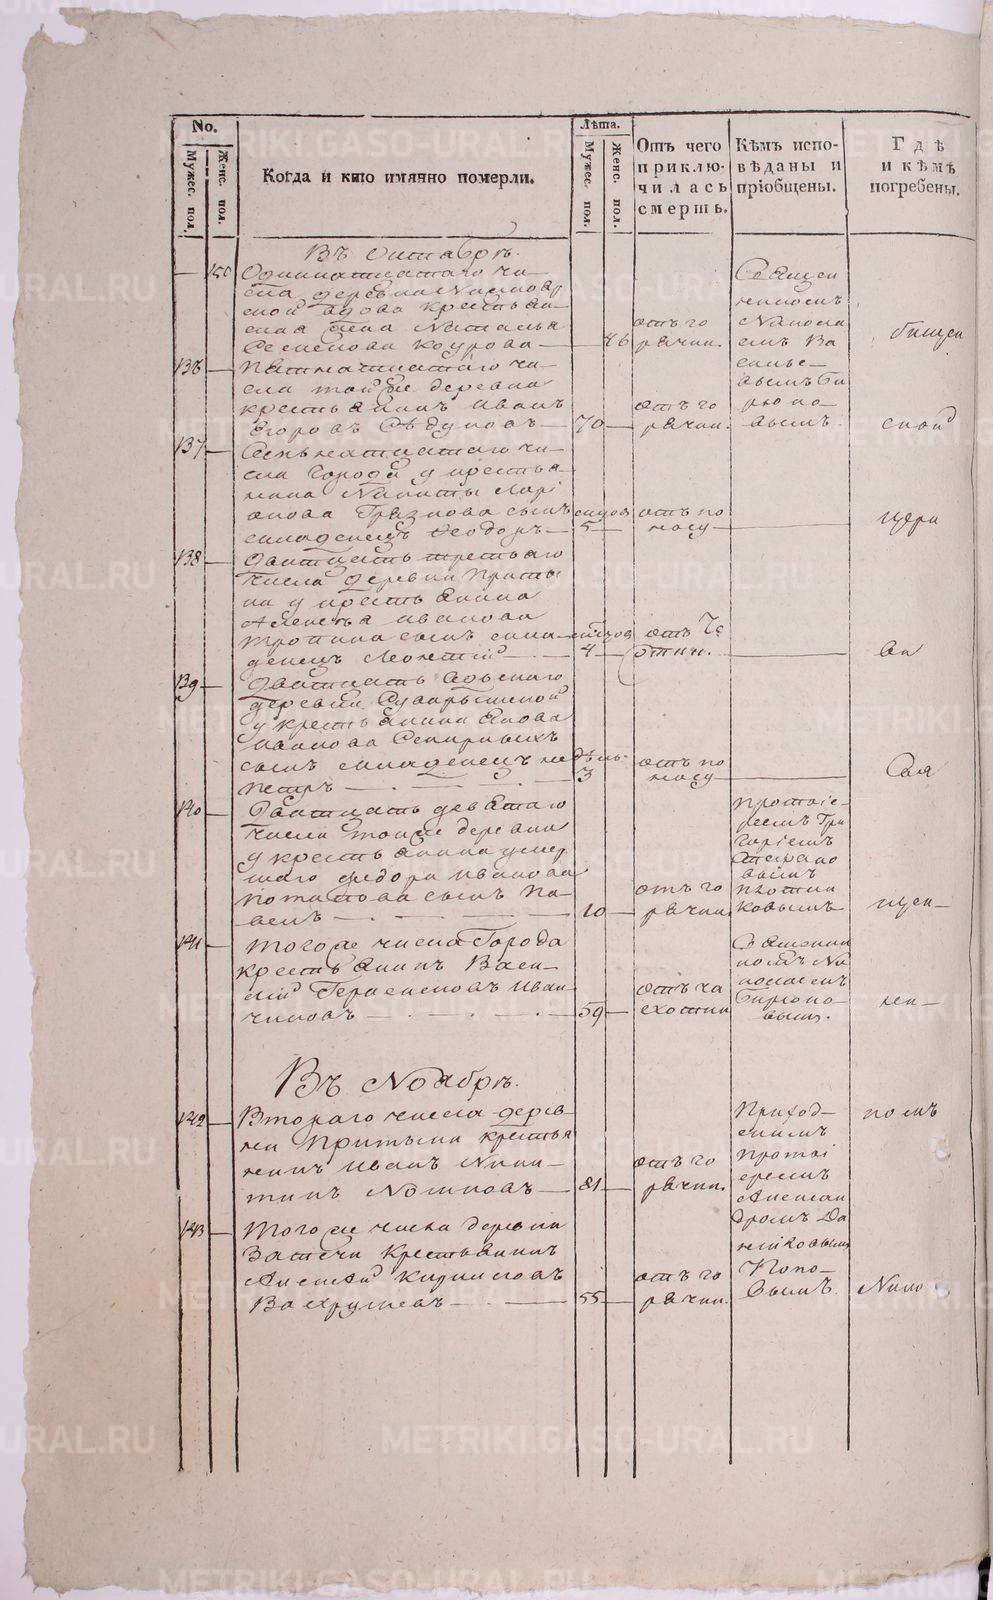 No.
Мужес. пол.
Женс. пол.
Когда и кто имянно померли.
Лѣта.
Мужес. пол.
Женс. пол.
Отъ чего приклю-
чилась
смерть.
Кѣмъ испо-
вѣданы и
пріобщены.
Гдѣ
и кѣмъ
погребены.
Въ Октябрѣ.
150
Одиннатцатаго чи-
сла деревни
ской вдова крестьян-
ская жена Наталья
Семенова Коурова
86
отъ го
рячки.
Священ
никомъ
Никола
емъ Ва
силье-
вымъ Би
рюко-
вымъ.
136
Пятнатцатаго чи-
сла той же деревни
крестьянинъ Иванъ
Егоровъ Сѣдуновъ
70
отъ го
рячки.
137
Семьнатцатаго чи-
сла Города у крестья-
нина Никиты Ларі
онова Грязнова сынъ
младенецъ Феодоръ
5
отъ по
носу
138
Дватцать третьяго
числа деревни Приты
ки у крестьянина
Алексѣя Иванова
Тропина сынъ мла-
денецъ Леонтій
4
отъ
139
Дватцать
деревни
у крестьянина Якова
Иванова
сынъ младенецъ
Петръ
недѣль
3
отъ по
носу
140
Дватцать девятаго
числа тойже деревни
у крестьянина умер
шаго Федора Иванова
Поташова сынъ Па-
велъ
10
отъ го
рячки
Протоіе-
реемъ Гри
горіемъ
Стефано
вымъ
Плотни
ковымъ
141
Того же числа Города
крестьянинъ Васи-
лій Герасимовъ Иван
чиковъ
59
отъ ча
хотки
Священни
комъ Ни
колаемъ
Бирюко-
вымъ.
Въ Ноябрѣ.
142
Втораго числа дерев-
ни Притыки крестья
нинъ Иванъ Ники-
тинъ
81
отъ го
рячки.
Приход-
скимъ
Протоі
ереемъ
Алексан
дромъ
143
Того же числа деревни
Затечи крестьянинъ
Алексѣй Кириловъ
Вахрушевъ
55
отъ го
рячки.
Попо-
вымъ.
спой
церк
ва
Свя
щен-
ни-
комъ
Нико